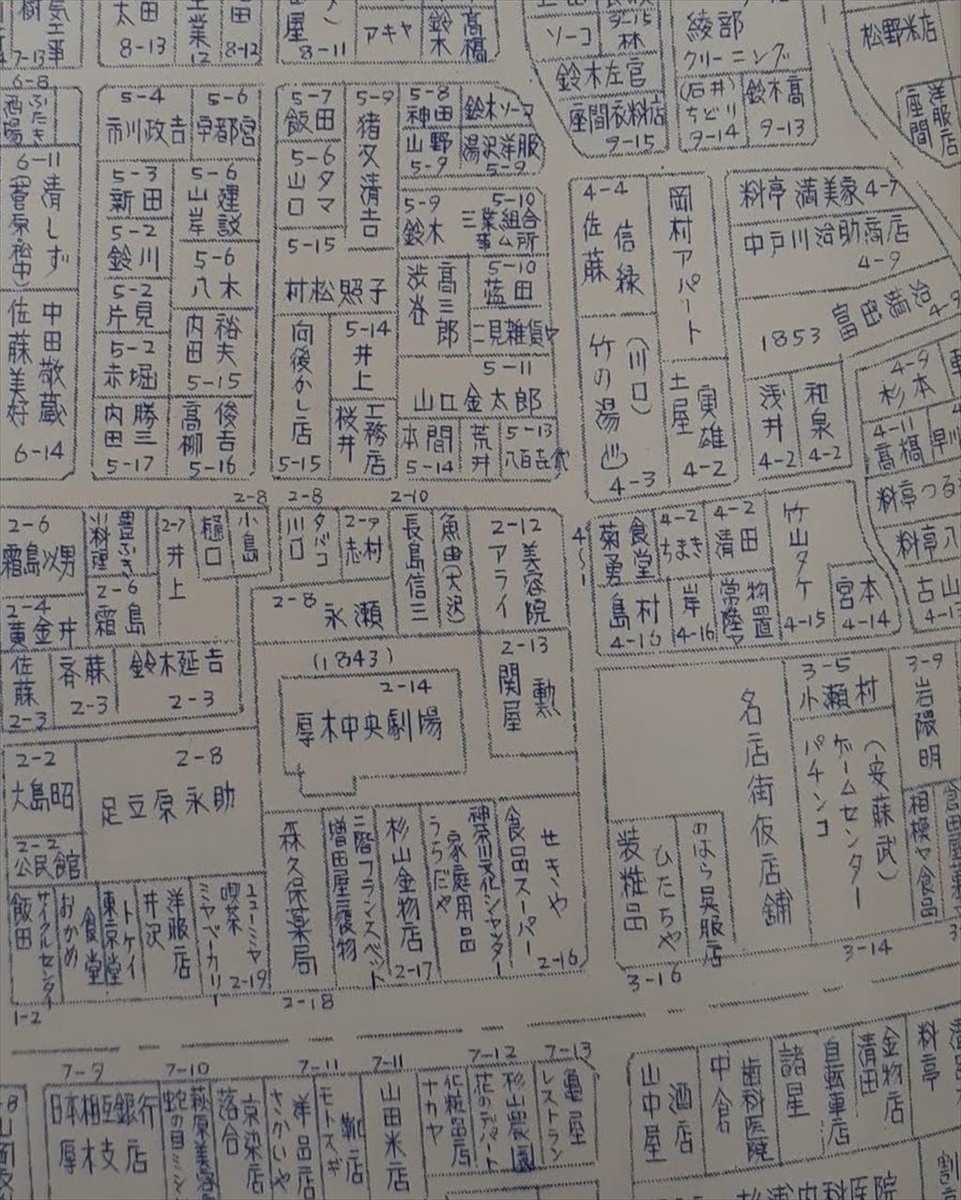 7-13
8-13
8-12
8-11
アキヤ
鈴木
高橋
ソーコ
9-15
林
綾部
クリーニング
松野米店
鈴木左官
座間衣料店
9-15
(石井)
ちどり
9-14
鈴木高
9-13
洋服店
座間
6-8
5-4
市川政吉
5-6
宇都宮
5-7
飯田
5-9
猪又清吉
5-8
神田
鈴木ソーコ
山野
5-9
湯沢洋服
5-9
6-11
清しず
5-3
新田
5-6
山岸建設
5-6
タマ
山口
5-9
鈴木
5-10
三業組合
事ム所
4-4
佐藤
信緑
岡村アパート
料亭 満美家 4-7
中戸川治助商店
4-9
5-2
鈴川
5-6
八木
5-15
村松照子
渋谷
高三郎
5-10
藍田
二見雑貨ヤ
1853
富田満治
4-9
佐藤美好
中田敬蔵
6-14
5-2
片見
5-2
赤堀
内田
裕夫
5-15
向後かし店
5-15
5-14
井上
5-11
山口金太郎
(川口)
竹の湯
4-3
土屋
実雄
4-2
浅井
4-2
和泉
4-2
4-9
杉本
4-11
高橋
早川
内田
勝三
5-17
高柳
俊吉
5-16
桜井
工務店
本間
5-14
荒井
5-13
八百吉倉
料亭つる
2-6
霜島次男
小料理
豊ふき
2-7
井上
樋口
2-8
小島
2-8
川口
タバコ
2-9
志村
2-10
長島信三
魚由(大沢)
2-12
美容院
アライ
4-1
菊勇
食堂
4-2
ちまき
4-2
清田
竹山タケ
4-15
宮本
4-14
料亭八
古山
4-13
2-4
黄金井
2-6
霜島
2-8
永瀬
島村
4-16
岸
4-16
常陸ヤ
物置
佐藤
2-3
斉藤
2-3
鈴木延吉
2-3
(1843)
2-14
厚木中央劇場
2-13
関屋
勲
名店街仮店舗
3-5
小瀬村
3-9
岩隈明
2-2
大島昭
2-8
足立原永助
2-2
公民館
(安藤武)
ゲームセンター
パチンコ
3-14
相模ヤ食品
飯田
サイクルセンター
1-2
おかめ
食堂
東京堂
トケイ
井沢
洋服店
ミヤベーカリー
喫茶
ニューミヤ
2-19
森久保薬局
2-18
増田屋履物
二階フランスベット
杉山金物店
2-17
うちだや
家庭用品
神奈川文化シャッター
食品スーパー
せきや
2-16
装粧品
ひたちや
3-16
のはら呉服店
7-9
日本相互銀行
厚木支店
7-10
蛇の目ミシン
萩原美容
落合
京染店
7-11
さかいや
洋品店
モトスギ
靴店
7-11
山田米店
7-12
ナカヤ
化粧品店
花のデパート
杉山農園
7-13
レストラン
亀屋
山中屋
酒店
中倉
歯科医院
諸星
自転車店
清田
金物店
料亭
杉浦内科医院